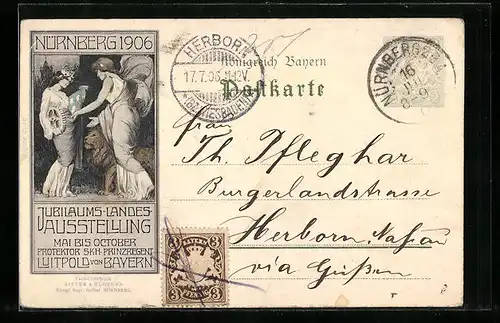 NÜRNBERG 1906
JUBILÄUMS-LANDES-
AUSSTELLUNG
MAI BIS OCTOBER
PROTEKTOR S.K.H. PRINZREGENT
LUITPOLD VON BAYERN
HERBORN
17.7.06
(BZ. WIESBADEN)
Königreich Bayern
Postkarte
NÜRNBERG
16
JUL
Frau
Th. Pfleghar
Burgerlandstrasse
Herborn, Nassau
via Gießen
3 3
3 3